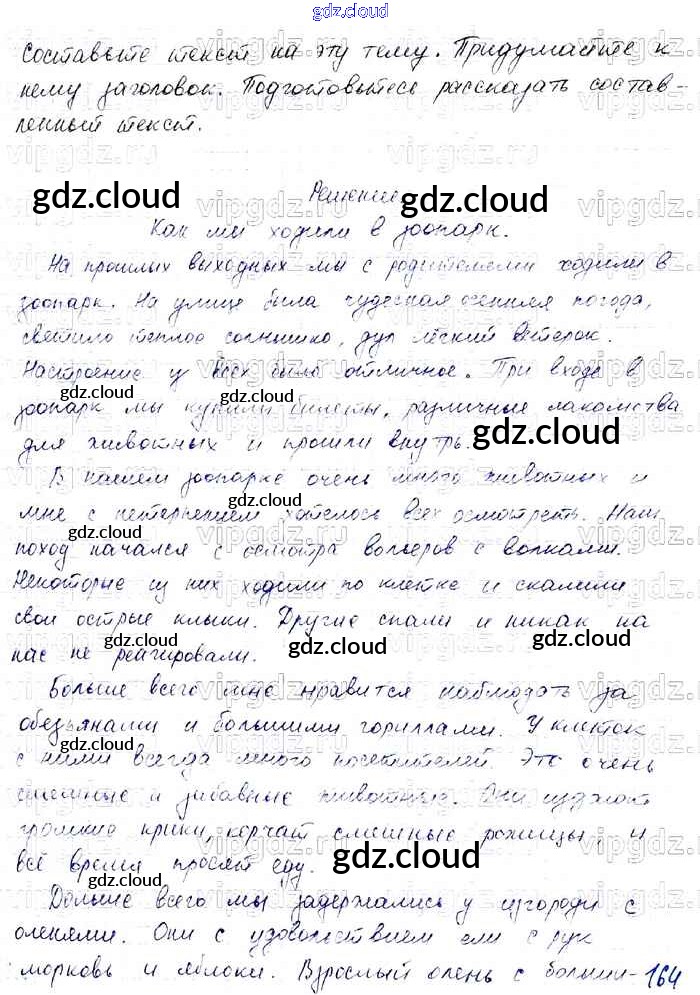 gdz.cloud
Составьте текст на эту тему. Придумайте к
нему заголовок. Подготовьтесь рассказать состав-
ленный текст.
Решение
Как мы ходили в зоопарк.
На прошлых выходных мы с родителями ходили в
зоопарк. На улице была чудесная осенняя погода,
светило теплое солнышко, дул лёгкий ветерок.
Настроение у всех было отличное. При входе в
зоопарк мы купили билеты, различные лакомства
для животных и прошли внутрь.
В нашем зоопарке очень много животных и
мне с нетерпением хотелось всех осмотреть. Наш
поход начался с осмотра вольеров с волками.
Некоторые из них ходили по клетке и скалили
свои острые клыки. Другие спали и никак на
нас не реагировали.
Больше всего мне нравится наблюдать за
обезьянами и большими гориллами. У клеток
с ними всегда много посетителей. Это очень
смешные и забавные животные. Они издают
громкие крики, корчат смешные рожицы, и
всё время просят еду.
Дольше всего мы задержались у изгороди с
оленями. Они с удовольствием ели с рук
морковь и яблоки. Взрослый олень с больши-
164